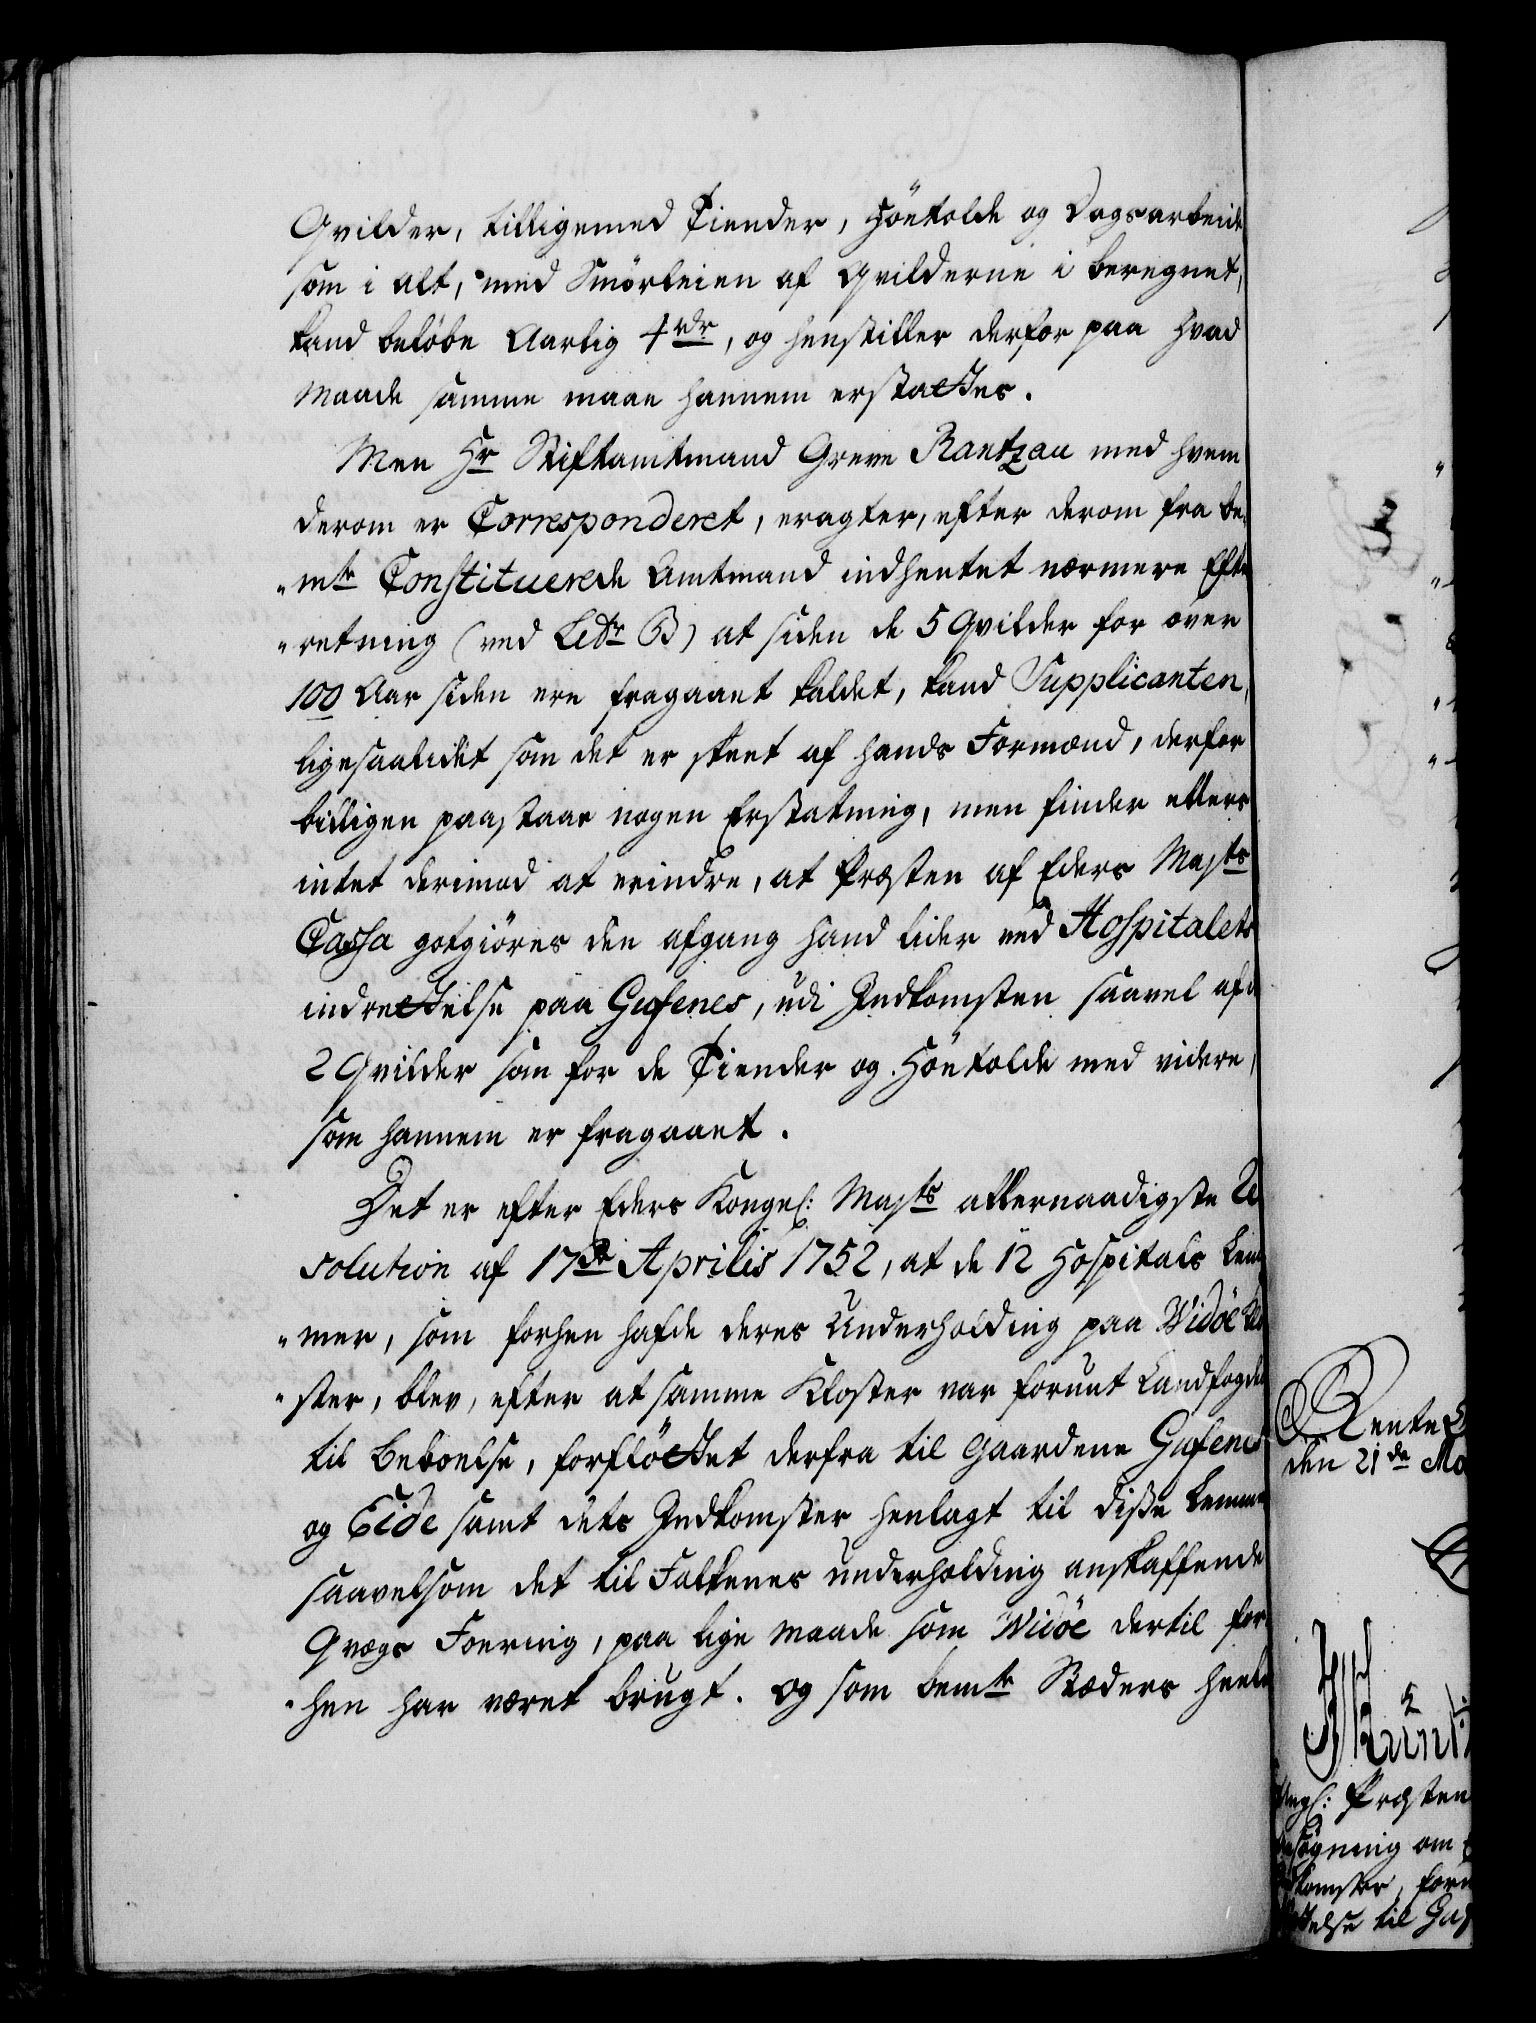 Qvilder, tilligemed Tiender, Höetolde og Dagsarbeide
som i alt, med Smörleien af Qvilderne i beregnet,
kand belöbe Aarlig 4 rdr, og henstiller derfor paa hvad
Maade samme maae hannem erstattes.
Men Hr Stiftamtmand Greve Rantzau med hvem
derom er Corresponderet, eragter, efter derom fra be-
mte Constituerede Amtmand indhentet nærmere Efter
retning (ved Litr B) at siden de 5 Qvilder for over
100 Aar siden ere fragaaet kaldet, kand Supplicanten,
ligesaalidet som det er skeet af hands Formænd, derfor
billigen paastaae nogen Erstatning, men finder ellers
intet derimod at erindre, at Præsten af Eders Majts
Cassa gotgiöres den afgang hand lider ved Hospitalets
indrettelse paa Gufenes, udi Indkomsten saavel af de
2 Qvilder som for de Tiender og Höetolde med videre,
som hannem er fragaaet.
Det er efter Eders Kongel: Majts allernaadigste Re
solution af 17de Aprilis 1752, at de 12 Hospitals Lem
mer, som forhen hafde deres Underholding paa Widöe Klo
ster, blev, efter at samme Kloster var forunt Landfogden
til Beboelse, forflöttet derfra til Gaardene Gufenes
og Eide samt dets Indkomster henlagt til disse Lemmer
saavelsom det til Falkenes underholding anskaffende
Qvægs Foering, paa lige Maade som Widöe dertil for-
hen har været brugt. og som bemte Stæders heele
Rente
den 21de Ma
Præsten
søgning om
komster, for
telse til Guf